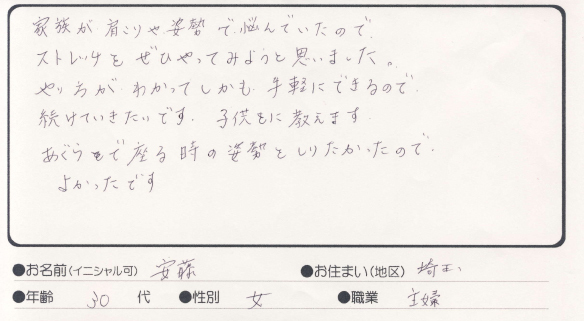 家族が肩こりや姿勢で悩んでいたので、
ストレッチを ぜひやってみようと思いました。
やり方が わかってしかも 手軽にできるので
続けていきたいです. 子供達に教えます.
あぐらで座る時の姿勢をしりたかったので.
よかったです
●お名前(イニシャル可) 安藤 ●お住まい(地区) 埼玉
●年齢 30 代 ●性別 女 ●職業 主婦